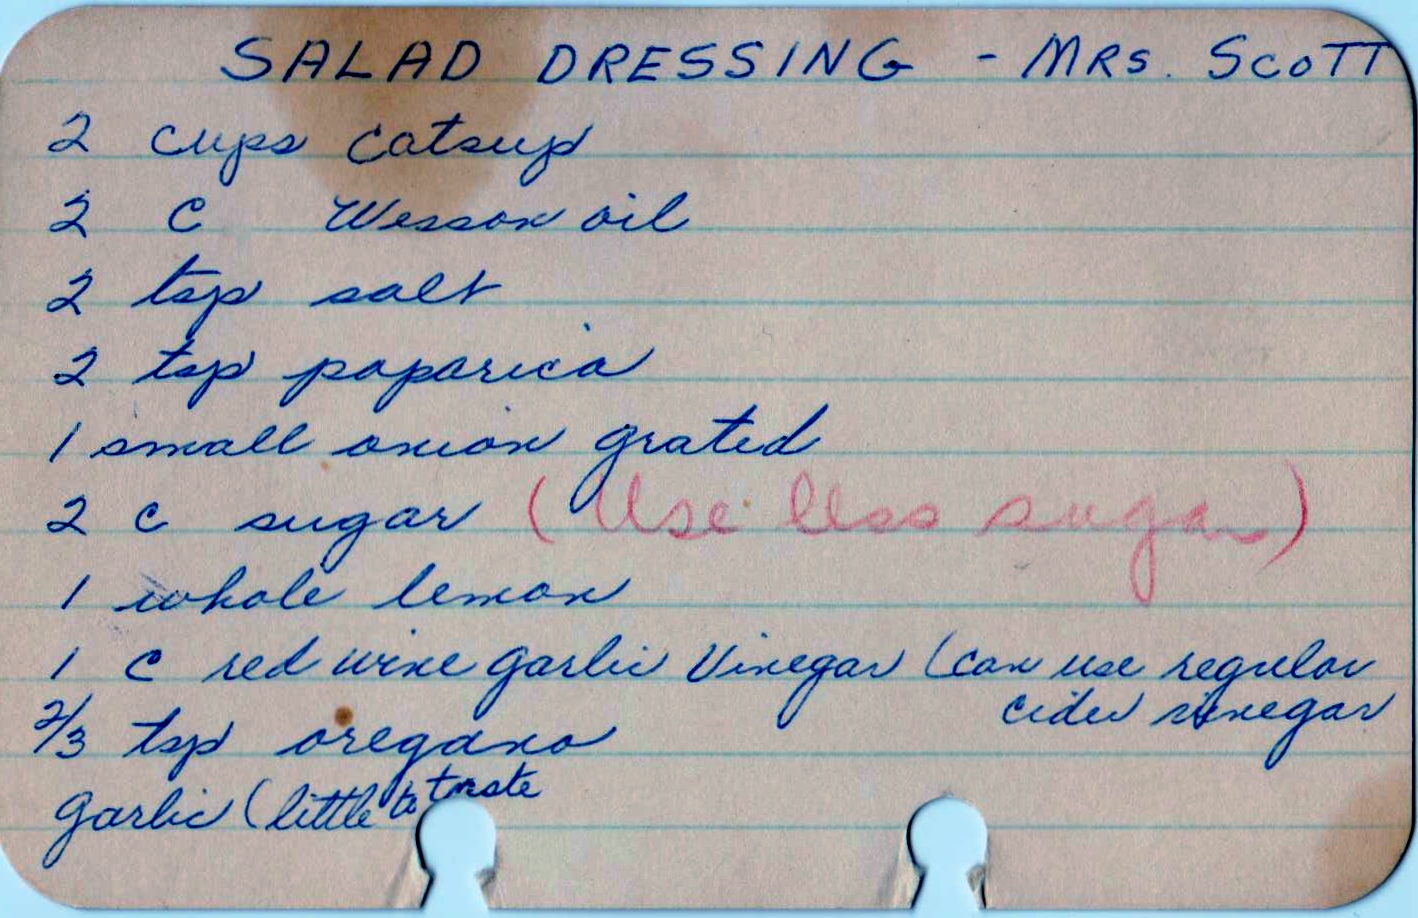 SALAD DRESSING - MRS. SCOTT
2 cups catsup
2 C Wesson oil
2 tsp salt
2 tsp paparica
1 small onion grated
2 c sugar (Use less sugar)
1 whole lemon
1 C red wine garlic Vinegar (can use regular
cider vinegar
2/3 tsp oregano
garlic (little to taste